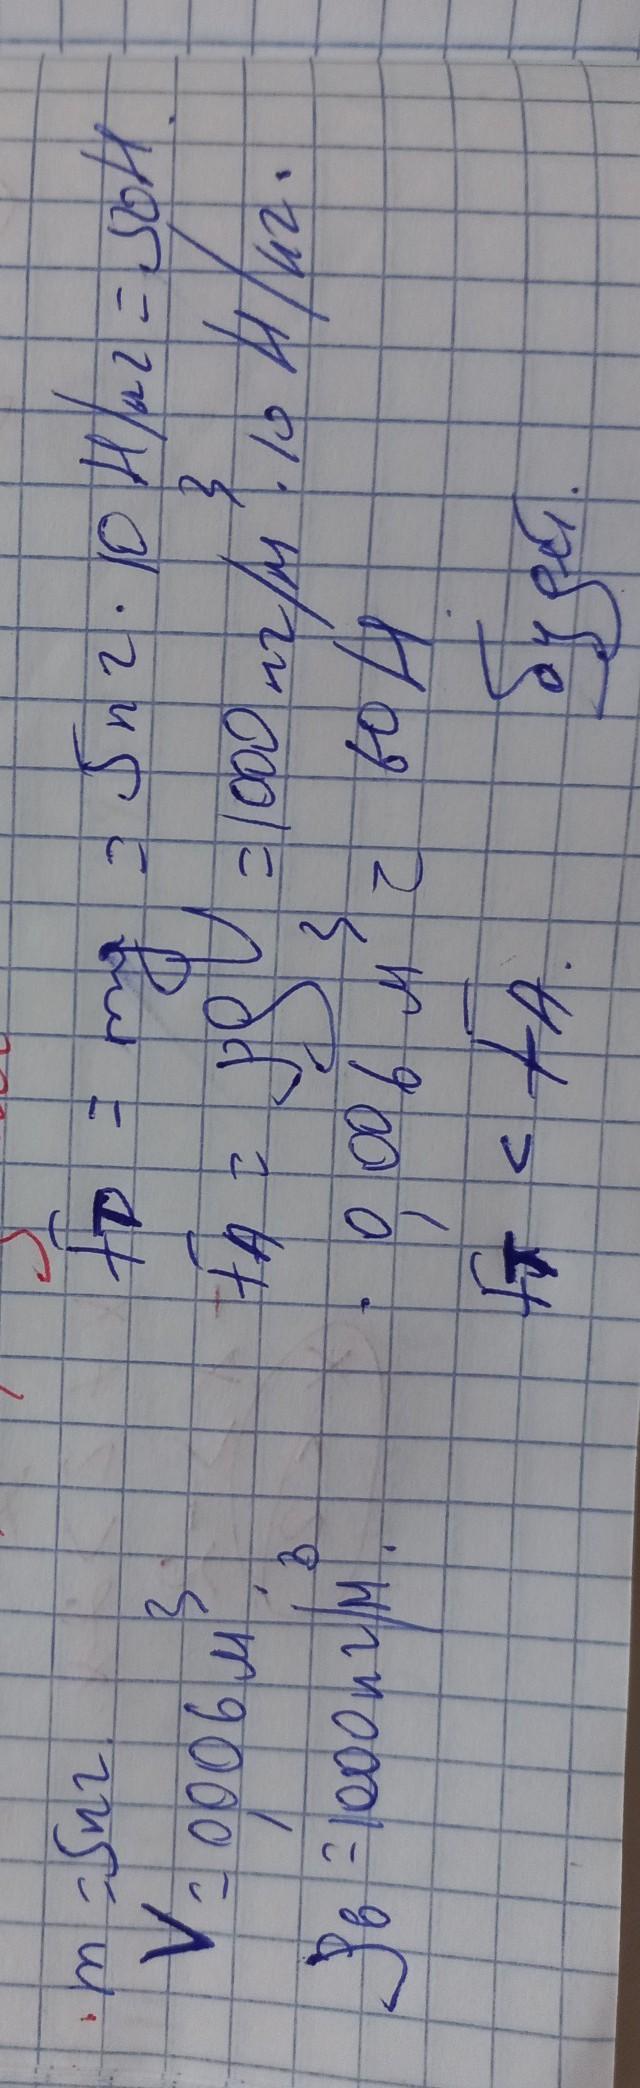 m = 5кг.
V = 0,006 м³.
ρв = 1000 кг/м³.
Fт = mg = 5кг · 10 Н/кг = 50Н.
FА = ρgV = 1000 кг/м³ · 10 Н/кг.
· 0,006 м³ = 60 Н
Fт < FА. будет.